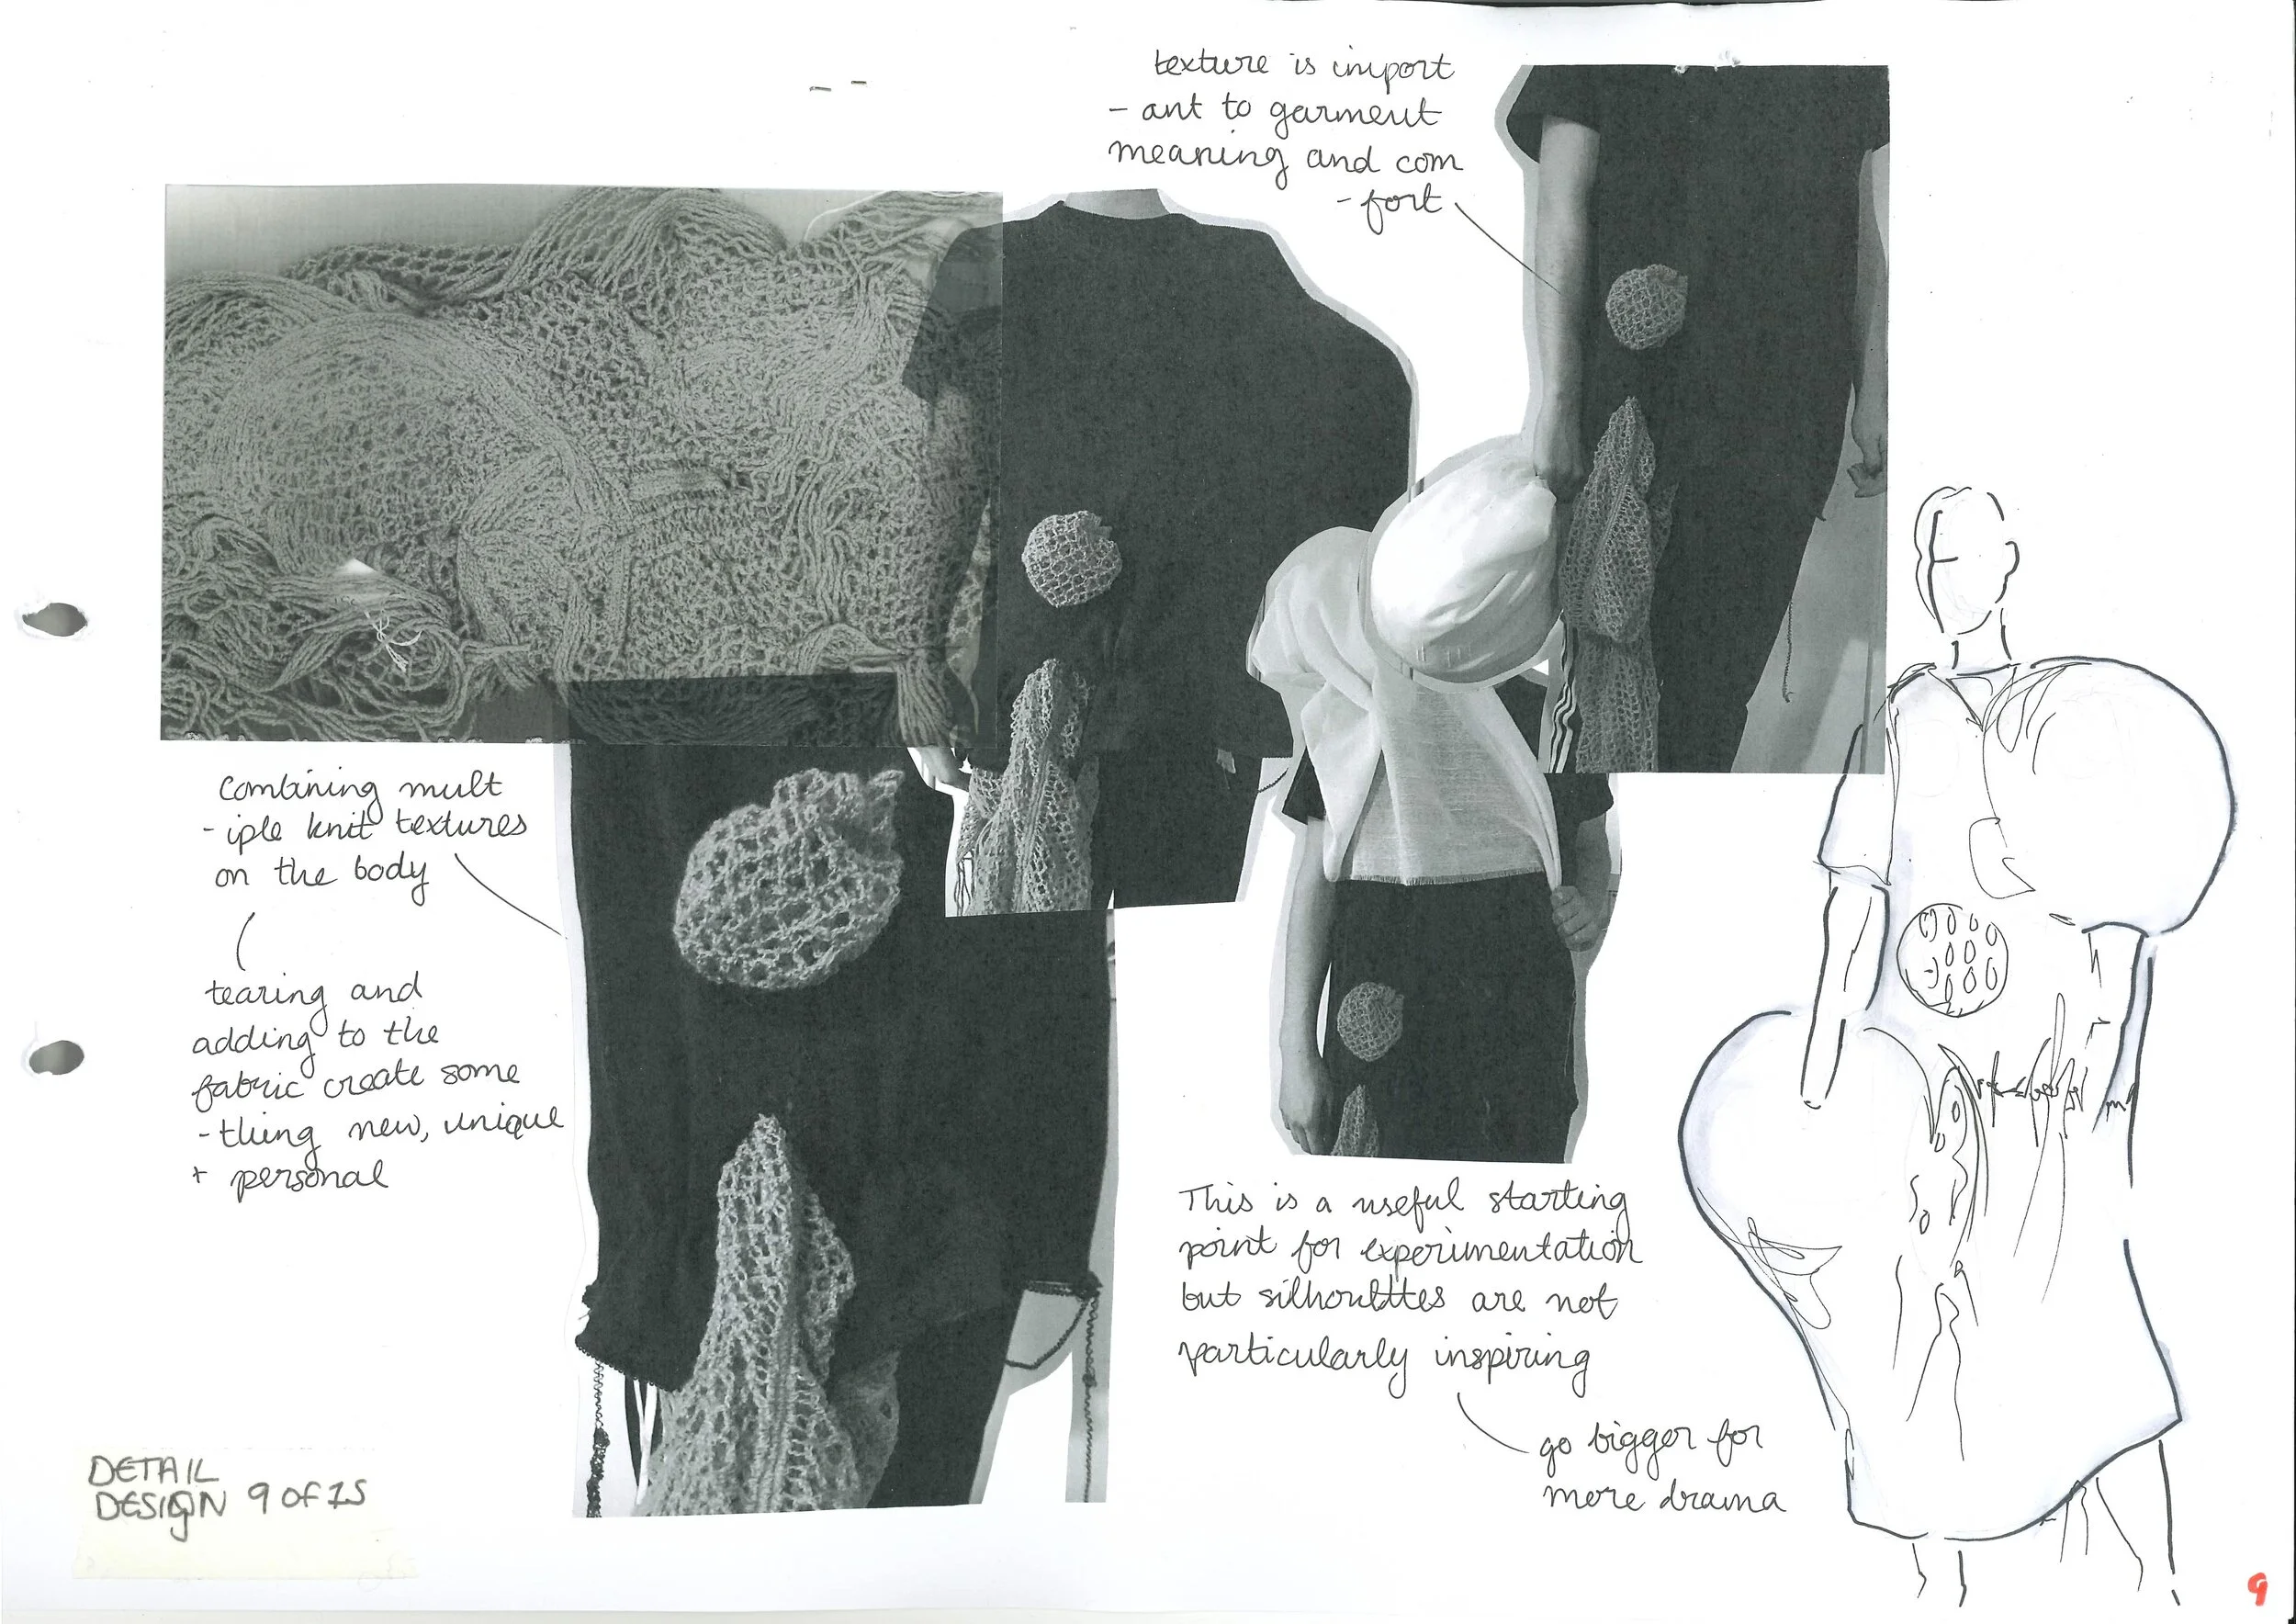 texture is import
- ant to garment
meaning and com
- fort
combining mult
- iple knit textures
on the body
tearing and
adding to the
fabric create some
- thing new, unique
+ personal
This is a useful starting
point for experimentation
but silhoulttes are not
particularly inspiring
go bigger for
more drama
DETAIL
DESIGN 9 OF 15
9